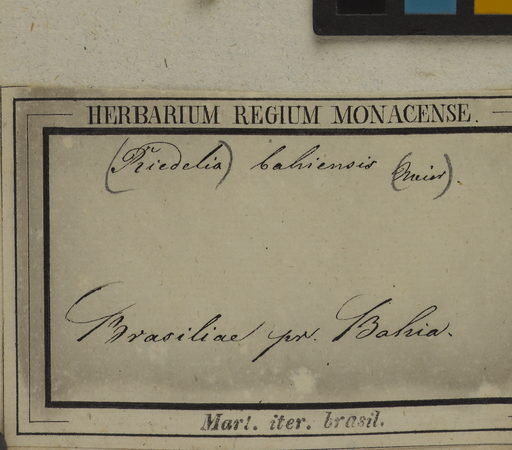 HERBARIUM REGIUM MONACENSE.
(Riedelia) bahiensis (Meisn).
Brasiliae pr. Bahia.
Mart. iter. brasil.